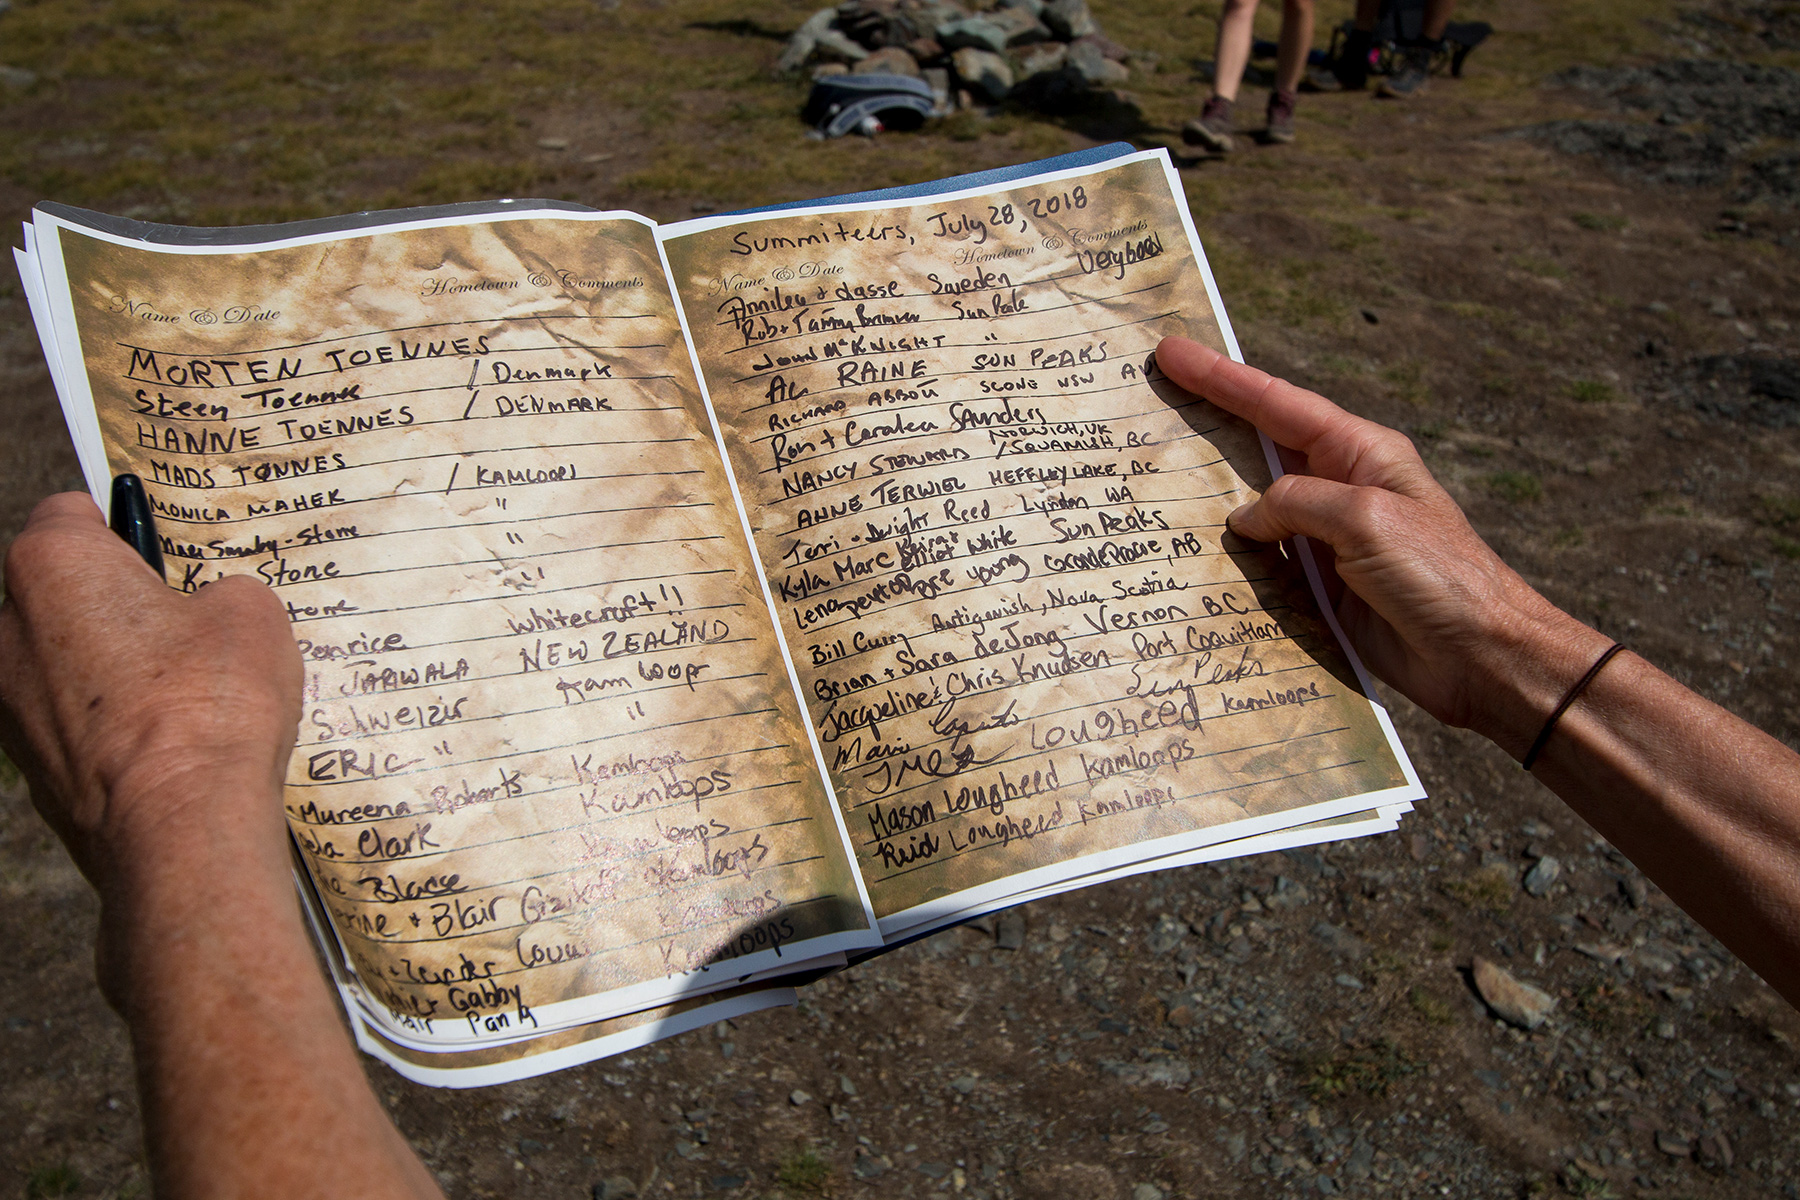 Name & Date Hometown & Comments
MORTEN TOENNES
Steen Toennes / Denmark
HANNE TOENNES / DENMARK
MADS TØNNES
MONICA MAHEK / KAMLOOPS
"
Stone "
Stone "
Penrice Whitecroft!!
JARIWALA NEW ZEALAND
Schweizir Kamloop
ERIC " "
Mureena Roberts Kamloops
Clark Kamloops
Kamloops
& Blair Kamloops
Kamloops
Kamloops
Gabby
Summiteers, July 28, 2018
Name & Date Hometown & Comments
+ Lasse Sweden Very Good
Rob + Tammy Sun Peak
JOHN McKNIGHT "
AL RAINE SUN PEAKS
RICHARD ABBOU SCONE NSW
Ron + Coralea Saunders
NORWICH, UK
NANCY STEWARD / SQUAMISH, BC
ANNE TERWIEL HEFFLEY LAKE, BC
Terri + Dwight Reed Lynden WA
Kyla Marc Elliot White Sun Peaks
Lena young Grande Prairie, AB
Bill Curry Antigonish, Nova Scotia
Brian + Sara deJong Vernon BC
Jacqueline & Chris Knudsen Port Coquitlam
Mario Sun Peaks
Lougheed Kamloops
Mason Lougheed Kamloops
Reid Lougheed Kamloops